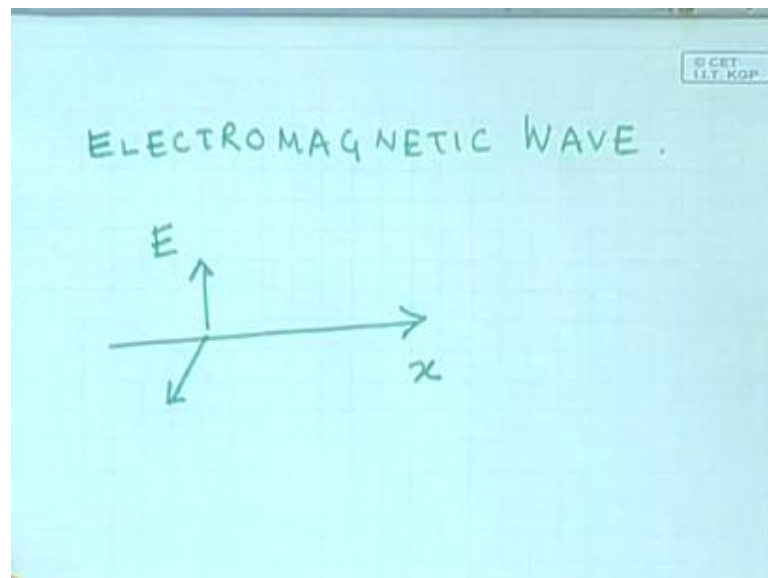 © CET
I.I.T. KGP
ELECTROMAGNETIC WAVE.
E
x